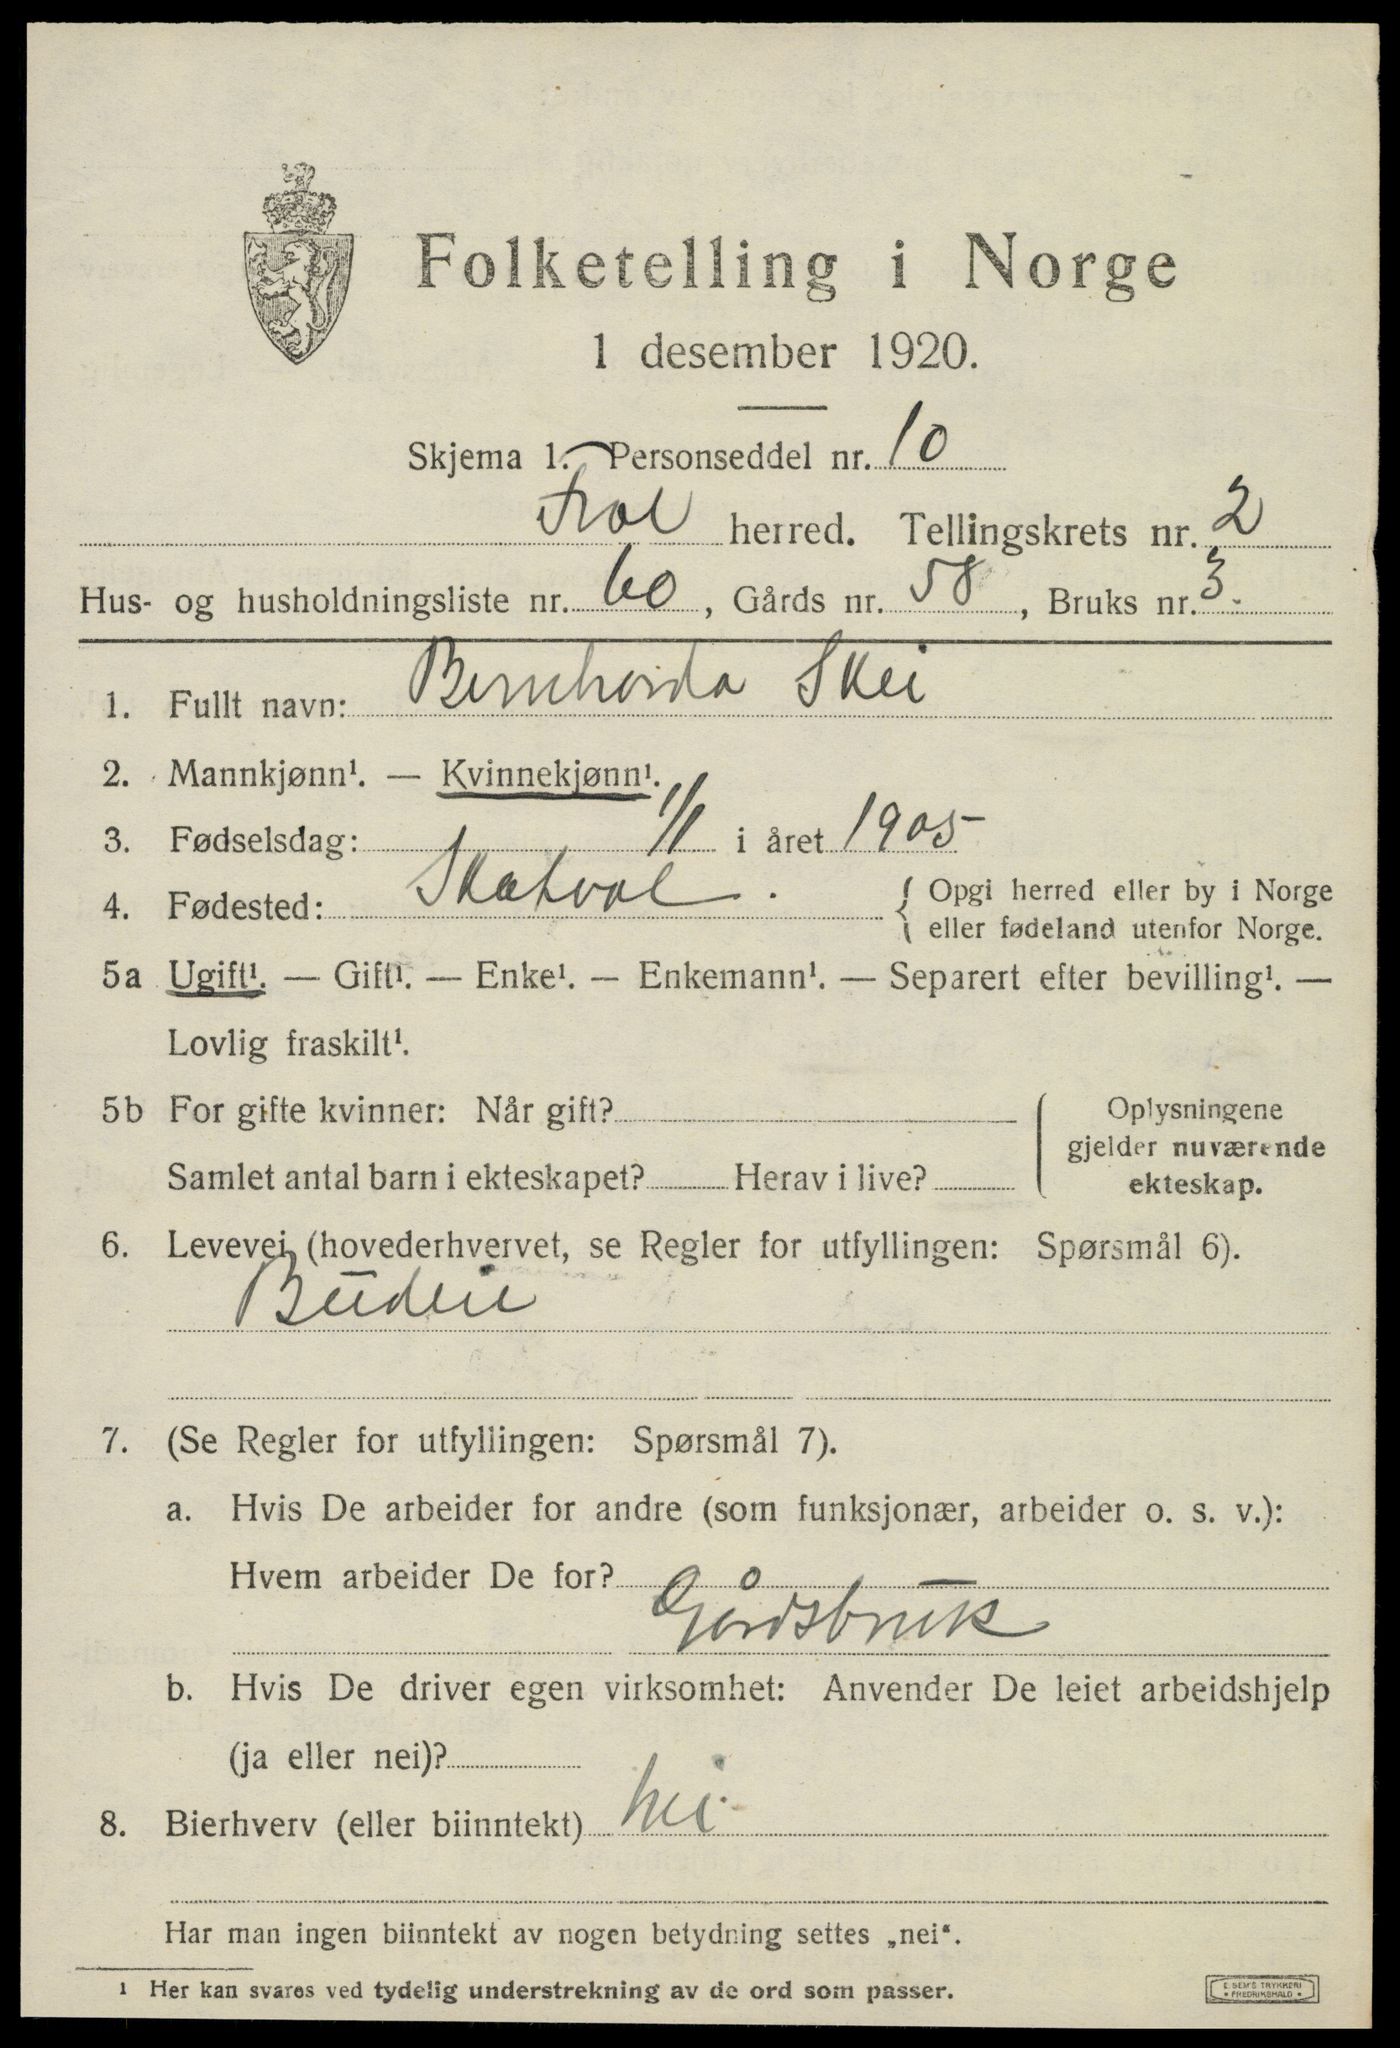 Folketelling i Norge
1 desember 1920.
Skjema 1. Personseddel nr. 10
Frol herred. Tellingskrets nr. 2
Hus- og husholdningsliste nr. 60, Gårds nr. 58, Bruks nr. 3.
1. Fullt navn: Bernharda Skei
2. Mannkjønn¹. — Kvinnekjønn¹.
3. Fødselsdag: 1/1 i året 1905
4. Fødested: Skatval. { Opgi herred eller by i Norge
eller fødeland utenfor Norge.
5a Ugift¹. — Gift¹. — Enke¹. — Enkemann¹. — Separert efter bevilling¹. —
Lovlig fraskilt¹.
5b For gifte kvinner: Når gift? Oplysningene
gjelder nuværende
Samlet antal barn i ekteskapet? Herav i live? ekteskap.
6. Levevei (hovederhvervet, se Regler for utfyllingen: Spørsmål 6).
Budeie
7. (Se Regler for utfyllingen: Spørsmål 7).
a. Hvis De arbeider for andre (som funksjonær, arbeider o. s. v.):
Hvem arbeider De for?
Gårdsbruk
b. Hvis De driver egen virksomhet: Anvender De leiet arbeidshjelp
(ja eller nei)?
8. Bierhverv (eller biinntekt) Nei
Har man ingen biinntekt av nogen betydning settes „nei“.
¹ Her kan svares ved tydelig understrekning av de ord som passer.
E. SEM'S TRYKKERI
• FREDRIKSHALD •